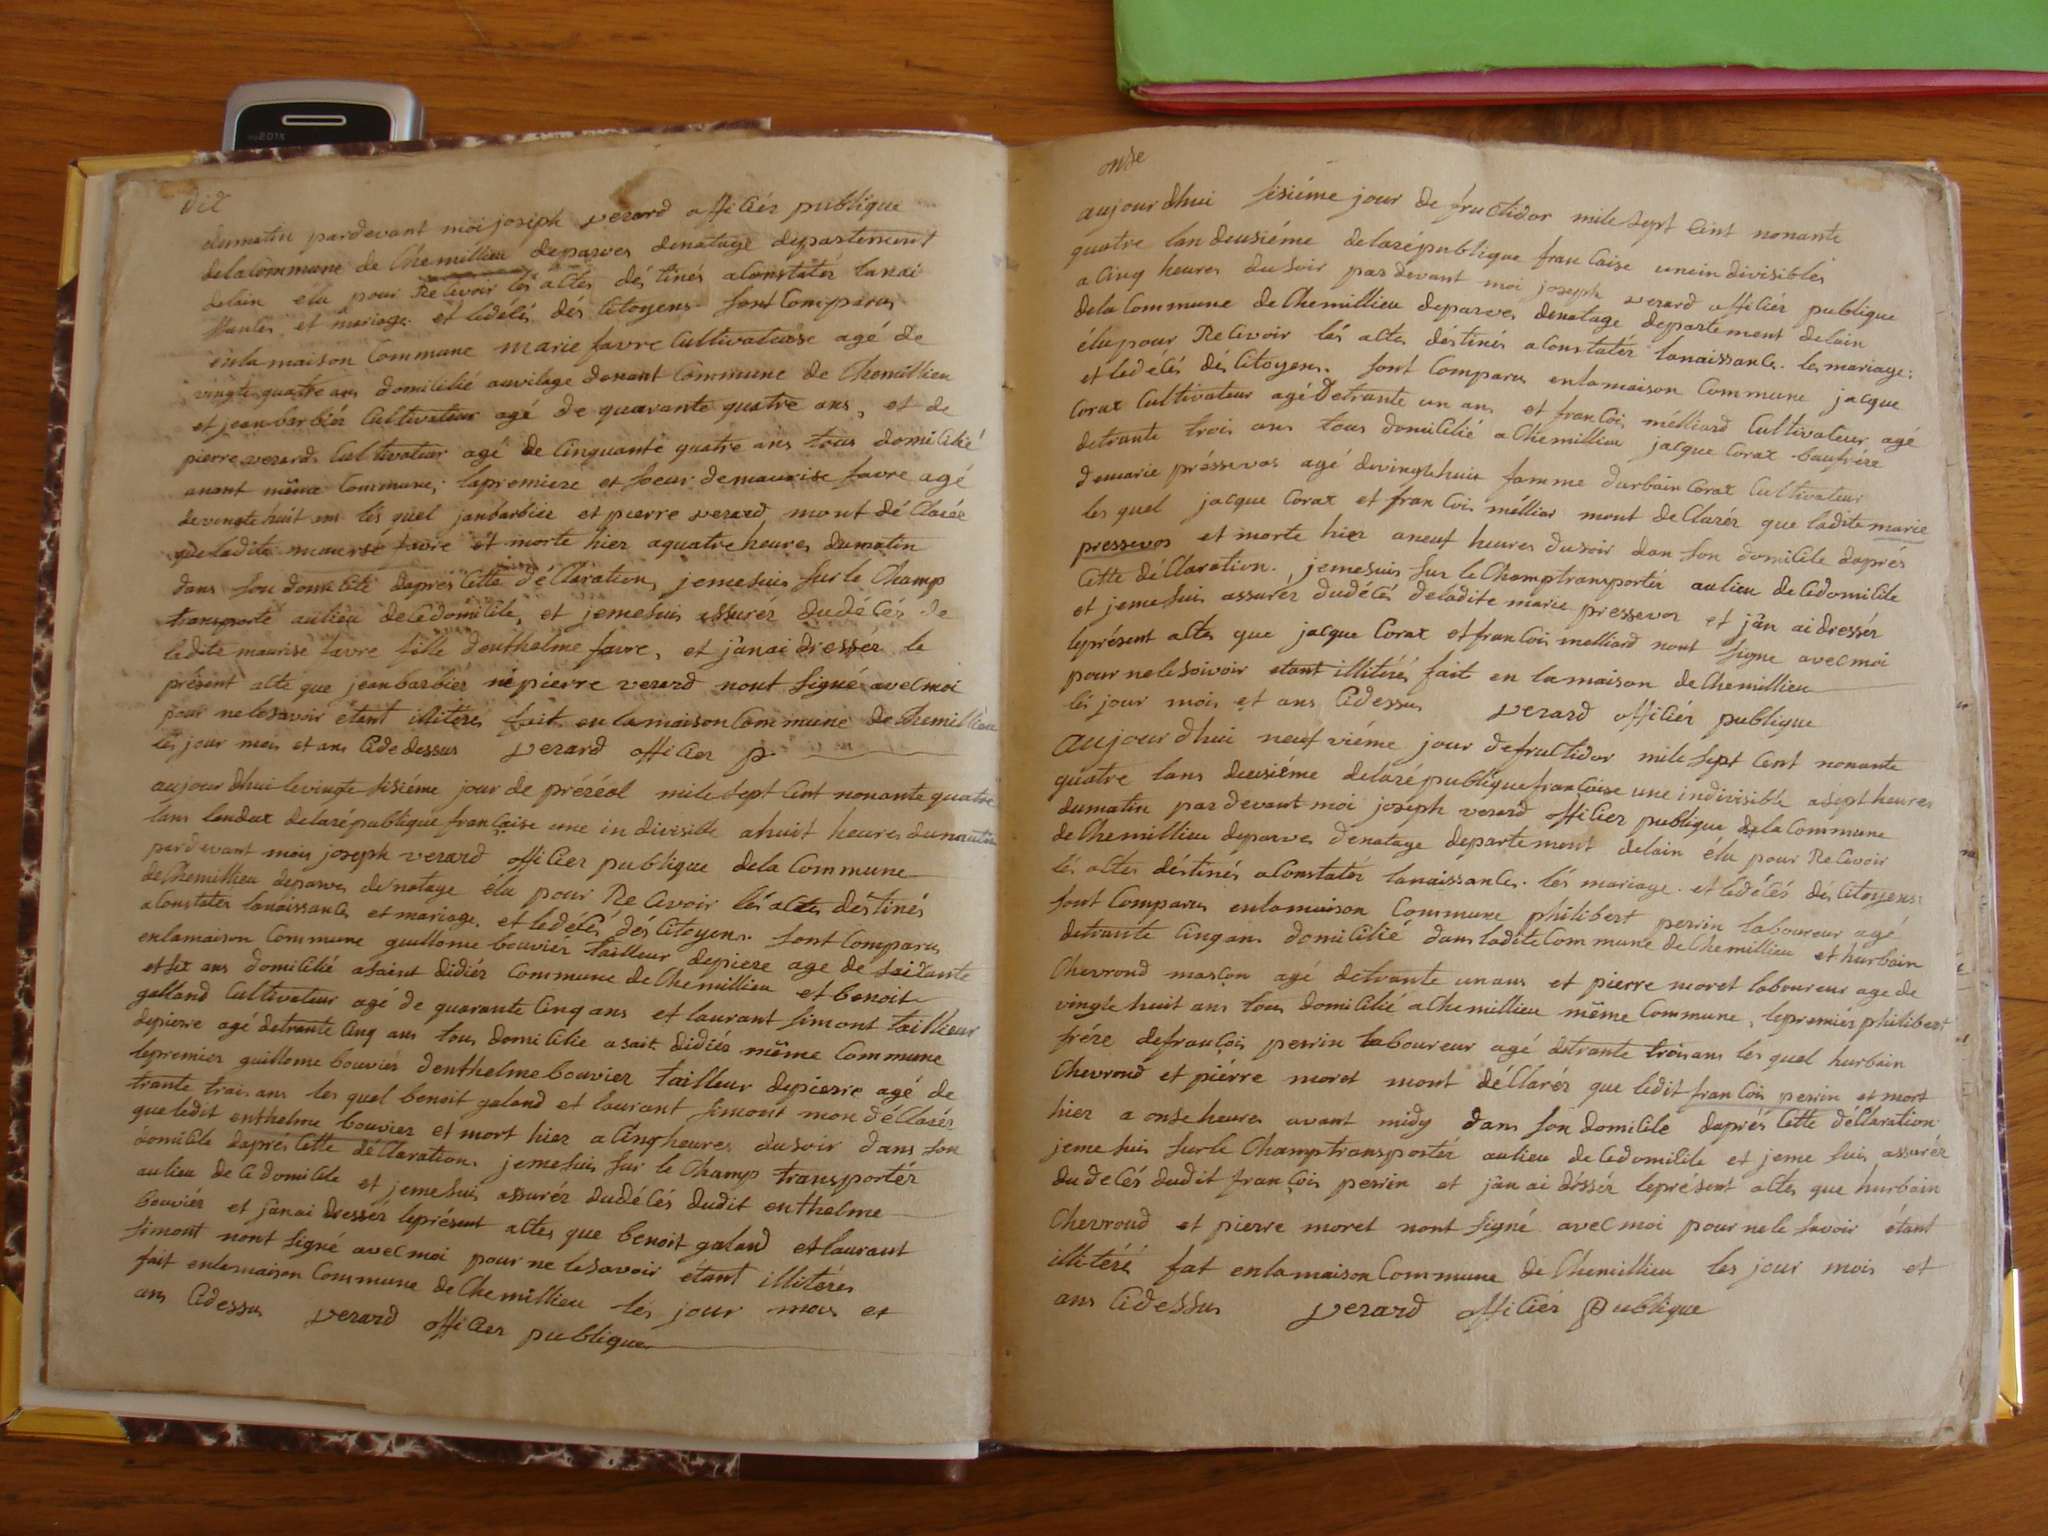 dix
dumatin pardevant moi joseph verard officiér publique
delacommune de Chemillieu deparves denatage departement
delain élu pour Recevoir lés actes déstinés aConstatér lanai
ssances et mariage et ledéces dés Citoyens sont Comparus
enlamaison Commune marie favre Cultivateuse agé de
vingte quatre ans domicilié auvilage denant Commune de Chemillieu
et jean barbiér Cultivateur agé de quarante quatre ans, et de
pierre verard Cultivateur agé de Cinquante quatre ans tous domicilié
anant même Commune; lapremiere et soeur demaurise favre agé
devingte huit ans lés quel janbarbiér et pierre verard mont dé Clarér
que ladite maurise favre et morte hier aquatre heures dumatin
dans son domicile daprés Cette déClaration, jemesuis sur le Champ
transporté aulieu deCedomicile, et jemesuis assurér dudécés de
ledite maurise favre fille denthelme favre, et j'anai dressér le
présent acte que jean barbiér ni pierre verard nont signé avecmoi
pour nelesavoir etant illiterés fait enlamaison Commune de Chemillieu
lés jour mois et ans Cidedessus verard officier p.
aujourdhui levingte sisiéme jour de préréal mile sept Cent nonante quatre
lans landeux delarépublique française une indivisible ahuit heures dumatin
perdevant mois joseph verard officier publique dela Commune
deChemillieu deparves denatage élu pour ReCevoir lés actes déstinés
aConstatér lanaissances et mariage et ledécés dés Citoyens sont Comparus
enlamaison Commune guillome bouviér tailleur depiere age de soixante
et six ans domicilié asaint didiér Commune deChemillieu et benoit
galland Cultivateur agé de quarante Cinq ans et laurant simont taillieur
depierre agé detrante Cinq ans tous domicilie asait didiér même Commune
lepremier guillome bouviér denthelme bouvier tailleur depierre agé de
trante trais ans les quel benoit galand et laurant simont mon déClarér
queledit enthelme bouvier et mort hier aCinq heures dusoir dans son
domicile daprés Cette déClaration jemesuis sur le Champ transportér
aulieu de Cedomicile et jemesuis assurér dudécés dudit enthelme
bouviér et j'anai dressér leprésent actes que benoit galand et laurant
simont nont signé avecmoi pour ne lesavoir etant illiterés
fait enlamaison Commune deChemillieu lés jour mois et
ans Cidessus verard officier publique
onse
aujourdhui sisiéme jour de fructidor mile sept Cent nonante
quatre lan deusiéme delarépublique française unein divisibles
a Cinq heures dusoir pardevant moi joseph verard officiér publique
dela Commune deChemillieu deparves denatage departement delain
élu pour ReCevoir lés actes déstinés aConstatér lanaissances les mariage
et ledécés dés Citoyens. sont Comparus enlamaison Commune jacque
Corat Cultivateur agé detrante un ans et francois mélliard Cultivateur agé
detrante trois ans tous domicilié aChemillieu jacque Corat baufrére
demarie préssevos agé devingtehuit famme durbain Corat Cultivateur
les quel jacque Corat et francois mélliar mont deClarér que ladite marie
pressevos et morte hier aneuf heures dusoir dan son domicile daprés
Cette déClaration. jemesuis sur leChamptransportér aulieu deCedomicile
et jemesuis assurér dudécés deladite marie pressevos et j'an aidressér
leprésent actes que jacque Corat et francois melliard nont signe avecmoi
pour nelesoivoir etant illitéré fait en lamaison deChemillieu
lés jour mois et ans Cidessus verard officiér publique
aujourdhui neufviéme jour defructidor mile sept Cent nonante
quatre lans deusiéme delarépublique française une indivisible asept heures
dumatin pardevant moi joseph verard officier publique dela Commune
deChemillieu deparves denatage departement delain élu pour ReCevoir
lés actes déstinés aConstatér lanaissances. lés mariage. et ledécés dés Citoyens
sont Comparus enlamaison Commune philibert perrin laboureur agé
detrante Cinq ans domicilié dans laditeCommune deChemillieu et hurbain
Chevroud masçon agé detrante un ans et pierre moret laboureur age de
vingte huit ans tous domicilié aChemillieu même Commune, lepremiér philibert
frére defrançois perrin laboureur agé detrante trois ans les quel hurbain
Chevroud et piérre moret mont déClarér que ledit francois perrin et mort
hier a onse heures avant midy dans son domicile daprés Cette déClaration
jemesuis sur le Champtransportér aulieu deCedomicile et jeme suis assurér
du deCés dudit françois perrin et j'an ai dréssér lepresent actes que hurbain
Chevroud et pierre moret nont signé avecmoi pour nele savoir étant
illitéré fat enlamaison Commune de Chemillieu les jour mois et
ans Cidessus verard officiér publique